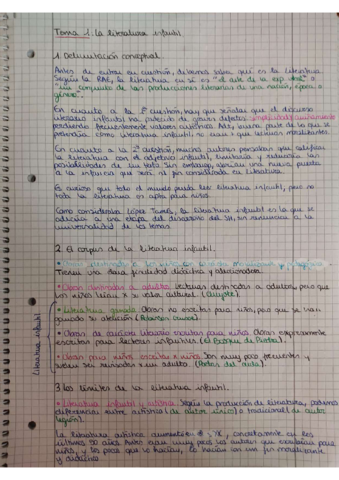 Tema 1: la literatura infantil
1. Delimitación conceptual.
Antes de entrar en cuestión, debemos saber que es la literatura
Según la RAE, la literatura en sí es "el arte de la exp. verbal" o
"un conjunto de las producciones literarias de una nación, época o
género".
En cuanto a la 1ª cuestión, hay que señalar que el discurso
literario infantil ha padecido de graves defectos: simplicidad y
perdiendo frecuentemente valores auténticos. Ads, mucha parte de lo que se
presenta como literatura infantil no suenan que lecturas moralizantes.
En cuanto a la 2ª cuestión, muchos autores pensaban que catalogar
la literatura con el adjetivo infantil, limitaría y reduciría las
posibilidades de un texto. Sin embargo, abriría una nueva puerta
a la infancia que sería al fin considerada en literatura.
Es curioso que todo el mundo pueda leer literatura infantil, pero no
toda la literatura es apta para niños.
Como considera López Tamés, la literatura infantil es la que se
adecúa a una etapa del desarrollo del SH, sin renunciar a la
universalidad de los temas.
2. El corpus de la literatura infantil.
Tienen una clara finalidad didáctica y adoctrinadora.
• Obras destinadas a adultos Lecturas destinadas a adultos, pero que
los niños leían x su valor cultural. (Quijote)
• Literatura ganada Obras no escritas para niños, pero que se han
ganado su atención (Robinson Crusoe)
• Obras de carácter literario escritas para niños Obras expresamente
escritas para lectores infantiles (El Bosque de Piedra)
• Obras para niños escritas x niños Son muy poco frecuentes y
deben ser revisadas x un adulto (Poetas del aula).
Literatura infantil
3. Los límites de la literatura infantil.
• Literatura infantil y autoría Según la producción de literatura, podemos
diferenciar entre artística (de autor único) o tradicional (de autor
legión).
La literatura artística concretamente en los
últimos 50 años. Antes eran muy pocos los autores que escribían para
niños, y los pocos que lo hacían, lo hacían con un fin moralizante
y didáctico